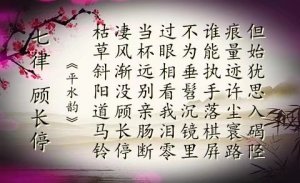 七律 顾长停
《平水韵》
枯草斜阳道马铃
凄风渐没顾长停
当杯远别亲肠断
过眼相看我泪零
不为垂髫沉镜里
谁能执手落棋屏
痕量迹许尘寰路
但始犹思入碣陉